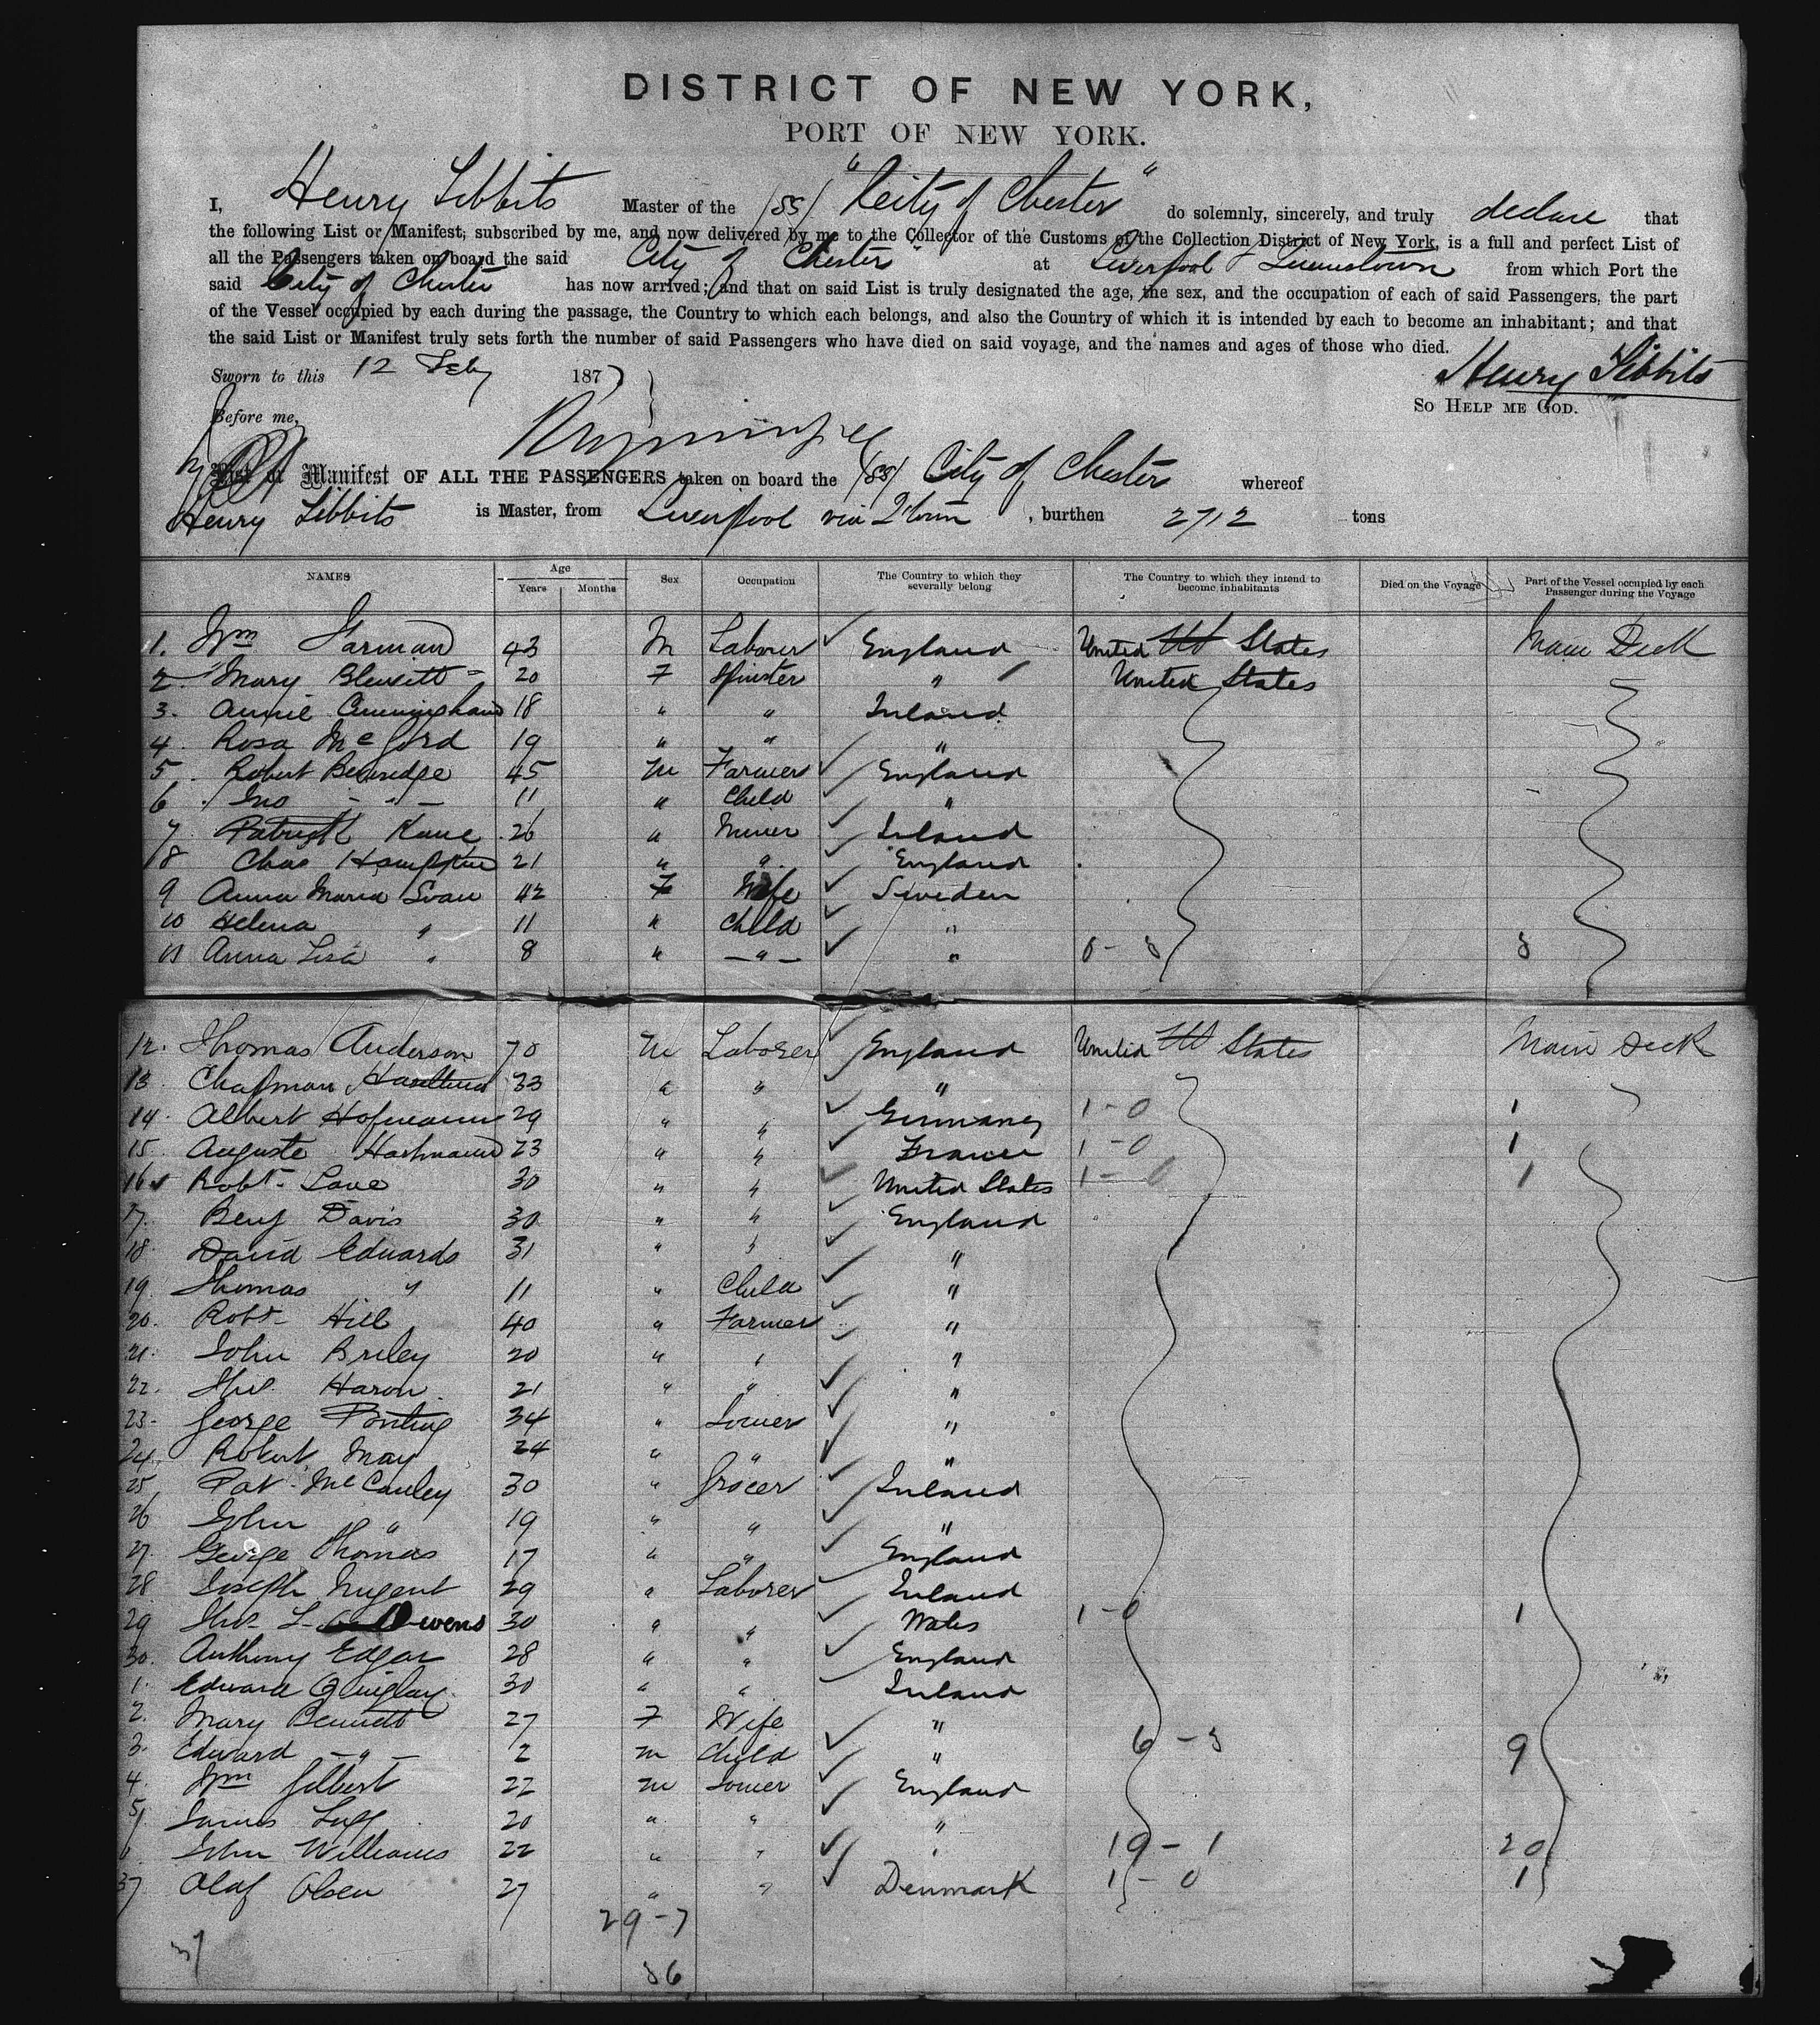 DISTRICT OF NEW YORK,
PORT OF NEW YORK.
I, Henry Tibbits Master of the (SS) "City of Chester" do solemnly, sincerely, and truly declare that
the following List or Manifest, subscribed by me, and now delivered by me to the Collector of the Customs of the Collection District of New York, is a full and perfect List of
all the Passengers taken on board the said City of Chester at Liverpool & Queenstown from which Port the
said City of Chester has now arrived; and that on said List is truly designated the age, the sex, and the occupation of each of said Passengers, the part
of the Vessel occupied by each during the passage, the Country to which each belongs, and also the Country of which it is intended by each to become an inhabitant; and that
the said List or Manifest truly sets forth the number of said Passengers who have died on said voyage, and the names and ages of those who died.
Sworn to this 12 Feby 1877
Henry Tibbits
So Help me God.
Before me,
List or Manifest OF ALL THE PASSENGERS taken on board the (SS) City of Chester whereof
Henry Tibbits is Master, from Liverpool via Q'town, burthen 2712 tons
NAMES Age Years Months Sex Occupation The Country to which they severally belong The Country to which they intend to become inhabitants Died on the Voyage Part of the Vessel occupied by each Passenger during the Voyage
1. Wm Jarman 43 M Laborer England United States Main Deck
2. Mary Blewitt 20 F Spinster " United States
3. Annie Cunningham 18 " " Ireland
4. Rosa McGord 19 " " "
5. Robert Beveridge 45 M Farmer England
6. Jno - " - 11 " Child "
7. Patrick Kane 26 " Miner Ireland
8 Chas Hampkins 21 " " England
9 Anna Maria Svan 42 F Wife Sweden
10 Helena " 11 " Child "
11 Anna Lisa " 8 " - " - "
12. Thomas Anderson 70 M Laborer England United States Main Deck
13 Chapman 33 " " "
14. Albert Hofmann 29 " " Germany 1-0 1
15. Auguste Hartmann 23 " " France 1-0 1
16 Robt. Lane 30 " " United States 1-0 1
17. Benj Davis 30 " " England
18. David Edwards 31 " " "
19 Thomas " 11 " Child "
20. Robt. Hill 40 " Farmer "
21. John Briley 20 " " "
22. Haron 21 " " "
23. George Ponting 34 " "
24. Robert May 24 " " "
25 Pat. McCauley 30 " Grocer Ireland
26 John " 19 " " "
27. George Thomas 17 " " England
28 Joseph Nugent 29 " Laborer Ireland
29 Thos. L. Owens 30 " " Wales 1-0 1
30. Anthony Edgar 28 " " England
1. Edward Quigley 30 " " Ireland
2. Mary Bennett 27 F Wife "
3. Edward - " - 2 M Child " 6-3 9
4. Wm Gilbert 22 M England
5 James Luff 20 " " "
6. John Williams 22 " " " 19-1 20
37 Olaf Olsen 27 " " Denmark 1-0 1
29-7
37
36